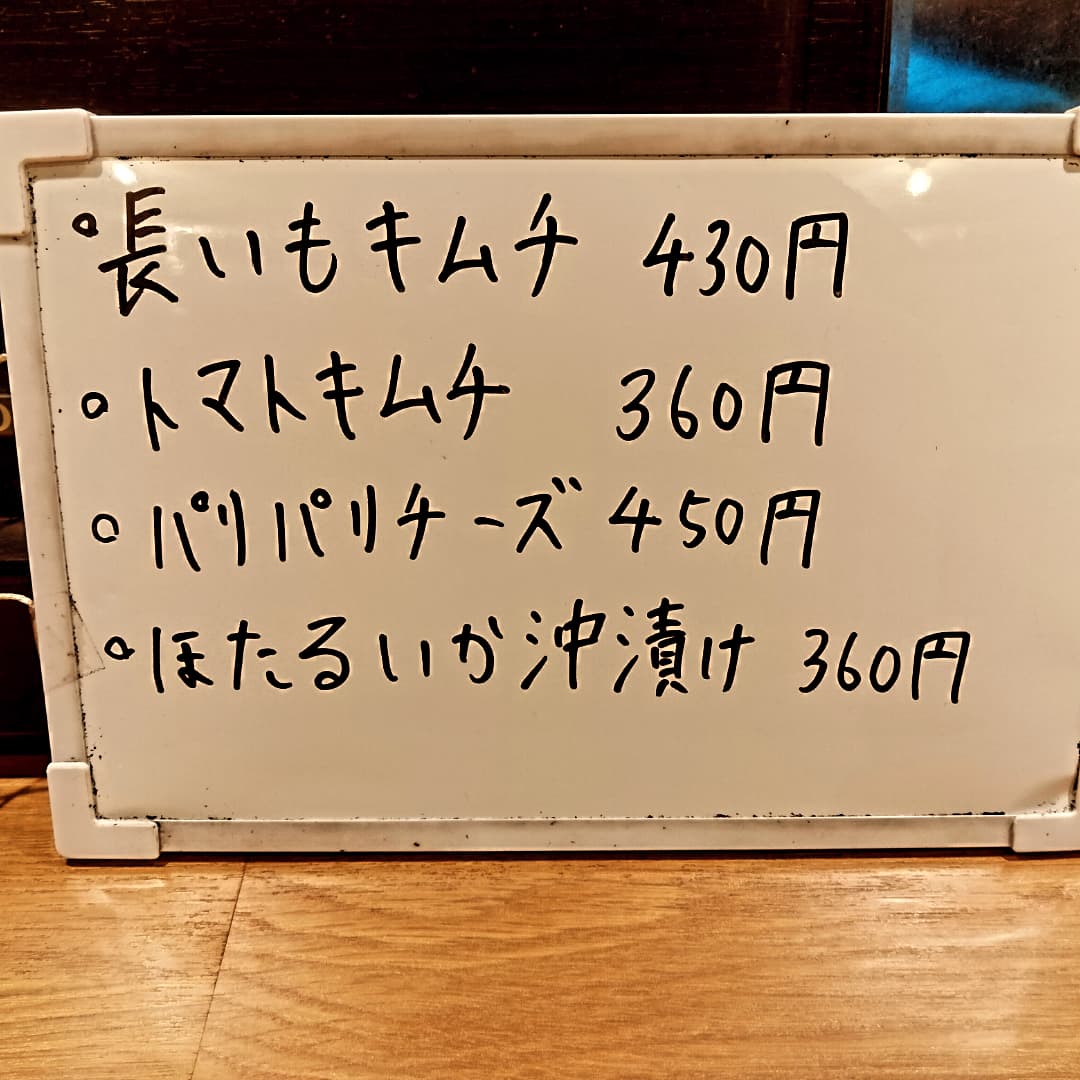 °長いもキムチ 430円
°トマトキムチ 360円
°パリパリチーズ 450円
°ほたるいか沖漬け 360円